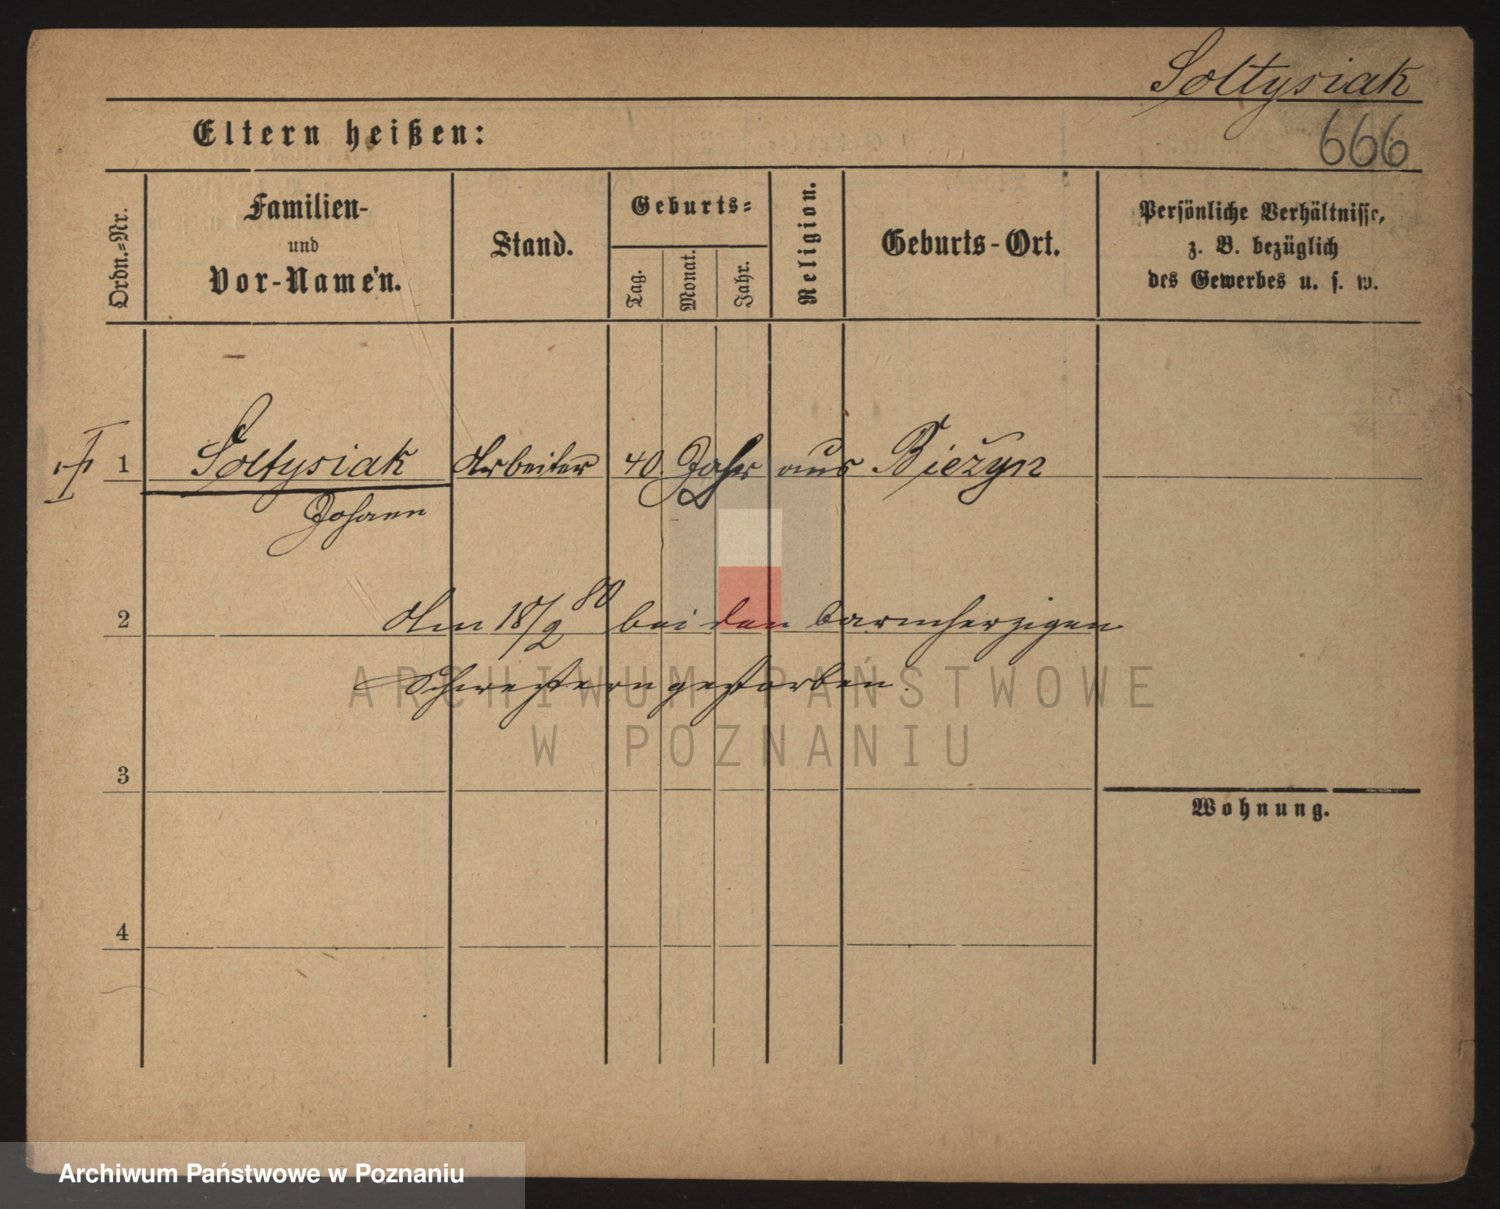 Soltysiak
Eltern heißen:
666
Ordn.-Nr.
Familien-
und
Vor-Namen.
Stand.
Geburts-
Tag.
Monat.
Jahr.
Religion.
Geburts-Ort.
Persönliche Verhältnisse,
z. B. bezüglich
des Gewerbes u. s. w.
1 Soltysiak Arbeiter 40 Jahr aus Bieżyn
Johann
2 Am 18/2 80 bei den barmherzigen
Schwestern gestorben.
3
Wohnung.
4
ARCHIWUM PAŃSTWOWE
W POZNANIU
Archiwum Państwowe w Poznaniu